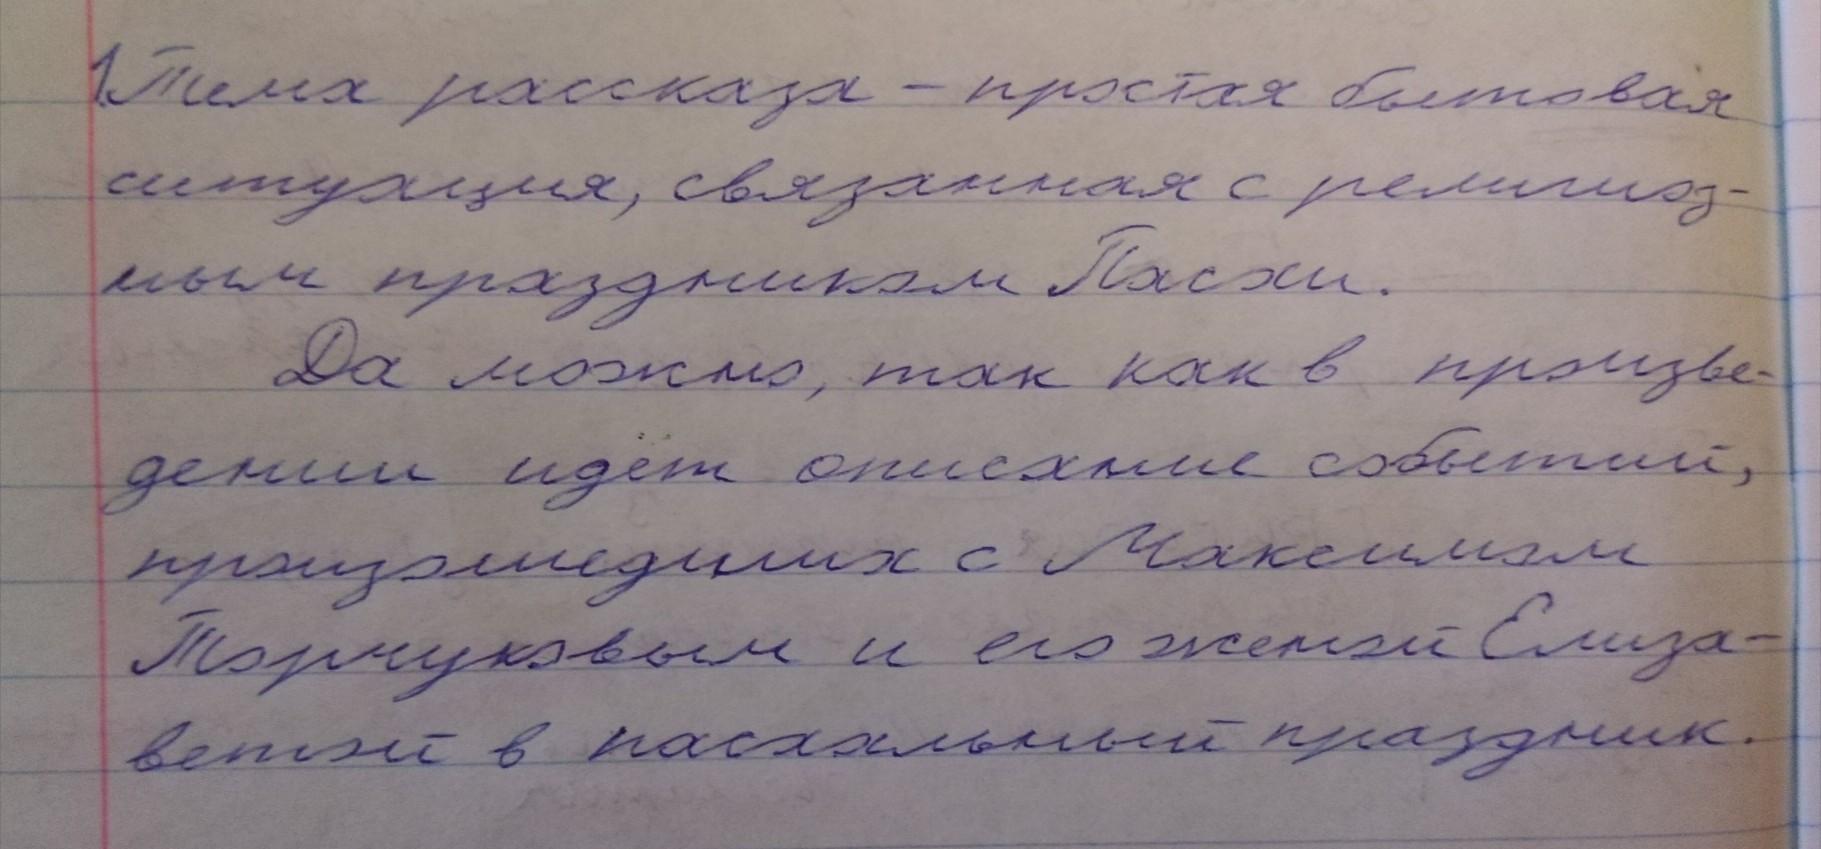 1. Тема рассказа – простая бытовая
ситуация, связанная с религиоз-
ным праздником Пасхи.
Да можно, так как в произве-
дении идёт описание событий,
произошедших с Максимом
Торчуковым и его женой Елиза-
ветой в пасхальный праздник.